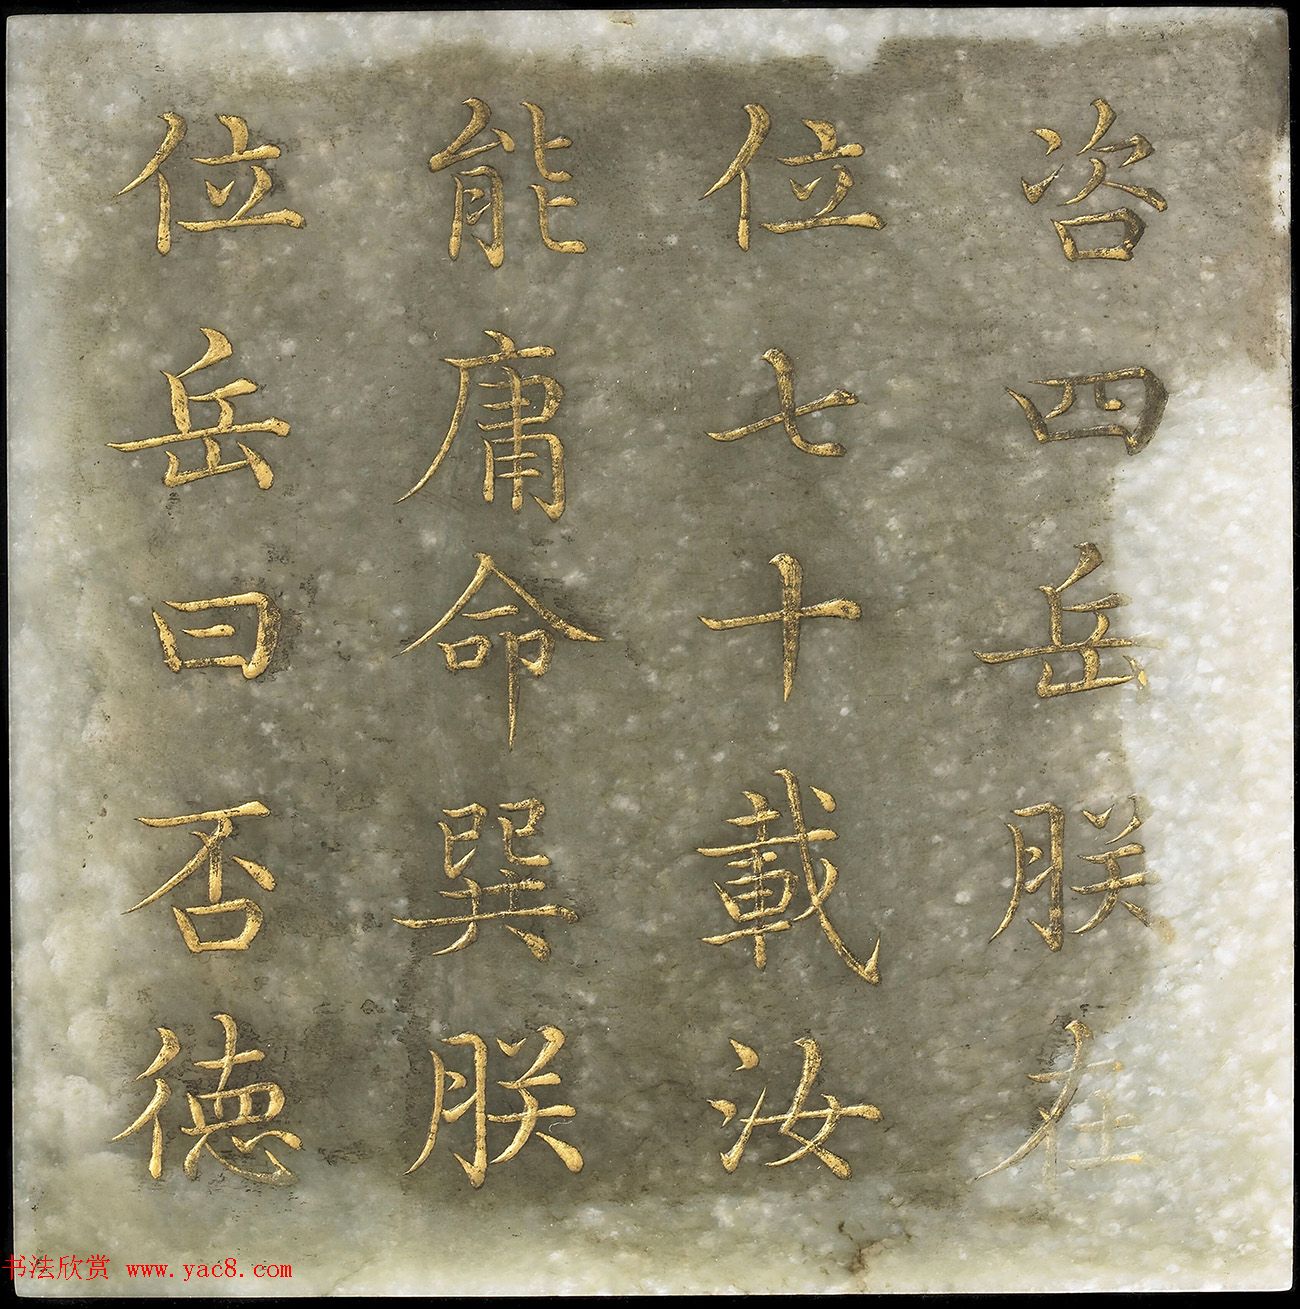 咨四岳朕在
位七十載汝
能庸命巽朕
位岳曰否德
书法欣赏 www.yac8.com